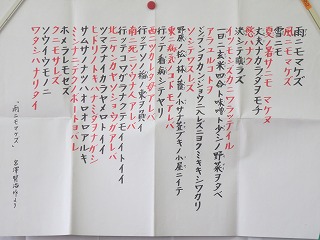 雨ニモマケズ
風ニモマケズ
雪ニモ
夏ノ暑サニモ マケヌ
丈夫ナカラダヲモチ
慾ハナク
決シテ瞋ラズ
イツモシズカニワラッテイル
一日ニ玄米四合ト味噌ト少シノ野菜ヲタベ
アラユルコトヲ
ジブンヲカンジョウニ入レズニヨクミキキシワカリ
ソシテワスレズ
野原ノ松ノ林ノ蔭ノ小サナ萱ブキノ小屋ニイテ
東ニ病気ノコドモアレバ
行ッテ看病シテヤリ
西ニツカレタ母アレバ
行ッテソノ稲ノ束ヲ負イ
南ニ死ニソウナ人アレバ
行ッテコワガラナクテモイイトイイ
北ニケンカヤソショウガアレバ
ツマラナイカラヤメロトイイ
ヒデリノトキハナミダヲナガシ
サムサノナツハオロオロアルキ
ミンナニデクノボートヨバレ
ホメラレモセズ
クニモサレズ
ソウイウモノニ
ワタシハナリタイ
「雨ニモマケズ」 宮澤賢治より